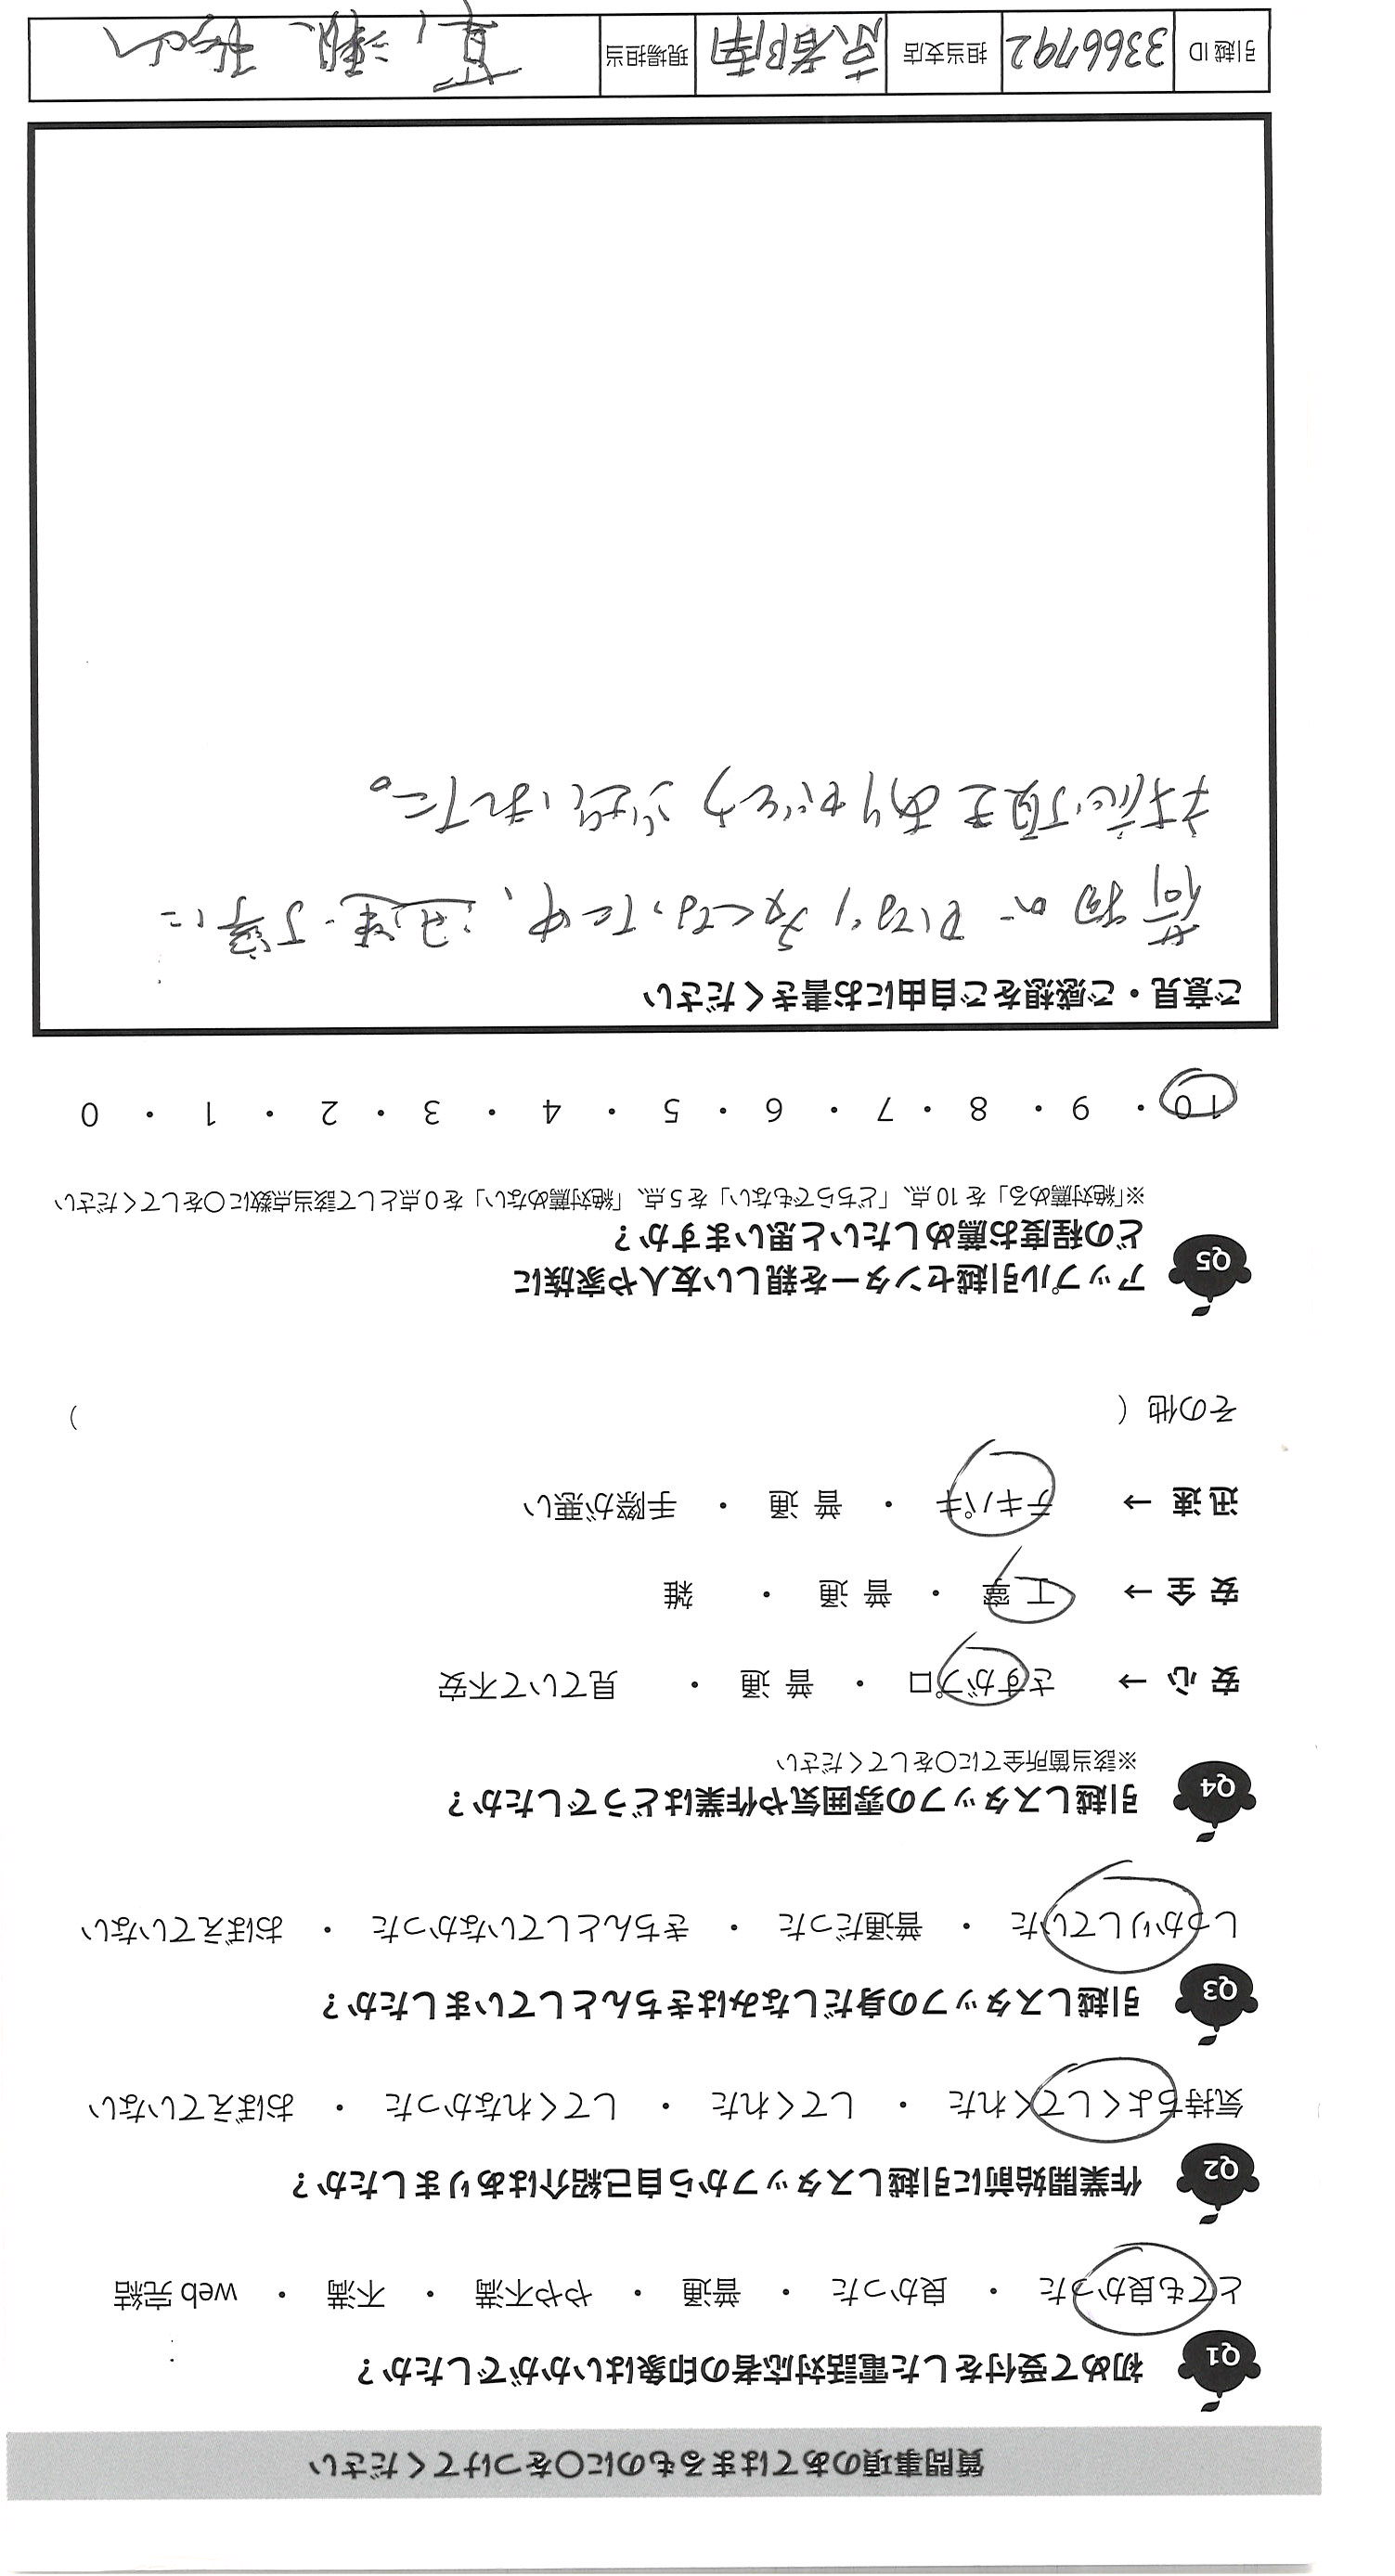 質問事項のあてはまるものに○をつけてください
Q1 初めて受付をした電話対応者の印象はいかがでしたか？
とても良かった ・ 良かった ・ 普通 ・ やや不満 ・ 不満 ・ web 完結
Q2 作業開始前に引越しスタッフから自己紹介はありましたか？
気持ちよくしてくれた ・ してくれた ・ してくれなかった ・ おぼえていない
Q3 引越しスタッフの身だしなみはきちんとしていましたか？
しっかりしていた ・ 普通だった ・ きちんとしていなかった ・ おぼえていない
Q4 引越しスタッフの雰囲気や作業はどうでしたか？
※該当箇所全てに○をしてください
安 心 → さすがプロ ・ 普 通 ・ 見ていて不安
安 全 → 丁 寧 ・ 普 通 ・ 雑
迅 速 → テキパキ ・ 普 通 ・ 手際が悪い
その他（ ）
Q5 アップル引越センターを親しい友人や家族に
どの程度お薦めしたいと思いますか？
※「絶対薦める」を 10 点、「どちらでもない」を 5 点、「絶対薦めない」を 0 点として該当点数に○をしてください
10 ・ 9 ・ 8 ・ 7 ・ 6 ・ 5 ・ 4 ・ 3 ・ 2 ・ 1 ・ 0
ご意見・ご感想をご自由にお書きください
荷物がかなり多くなった中、迅速・丁寧に
対応頂きありがとうございました。
引越 ID 3366792 担当支店 京都南 現場担当